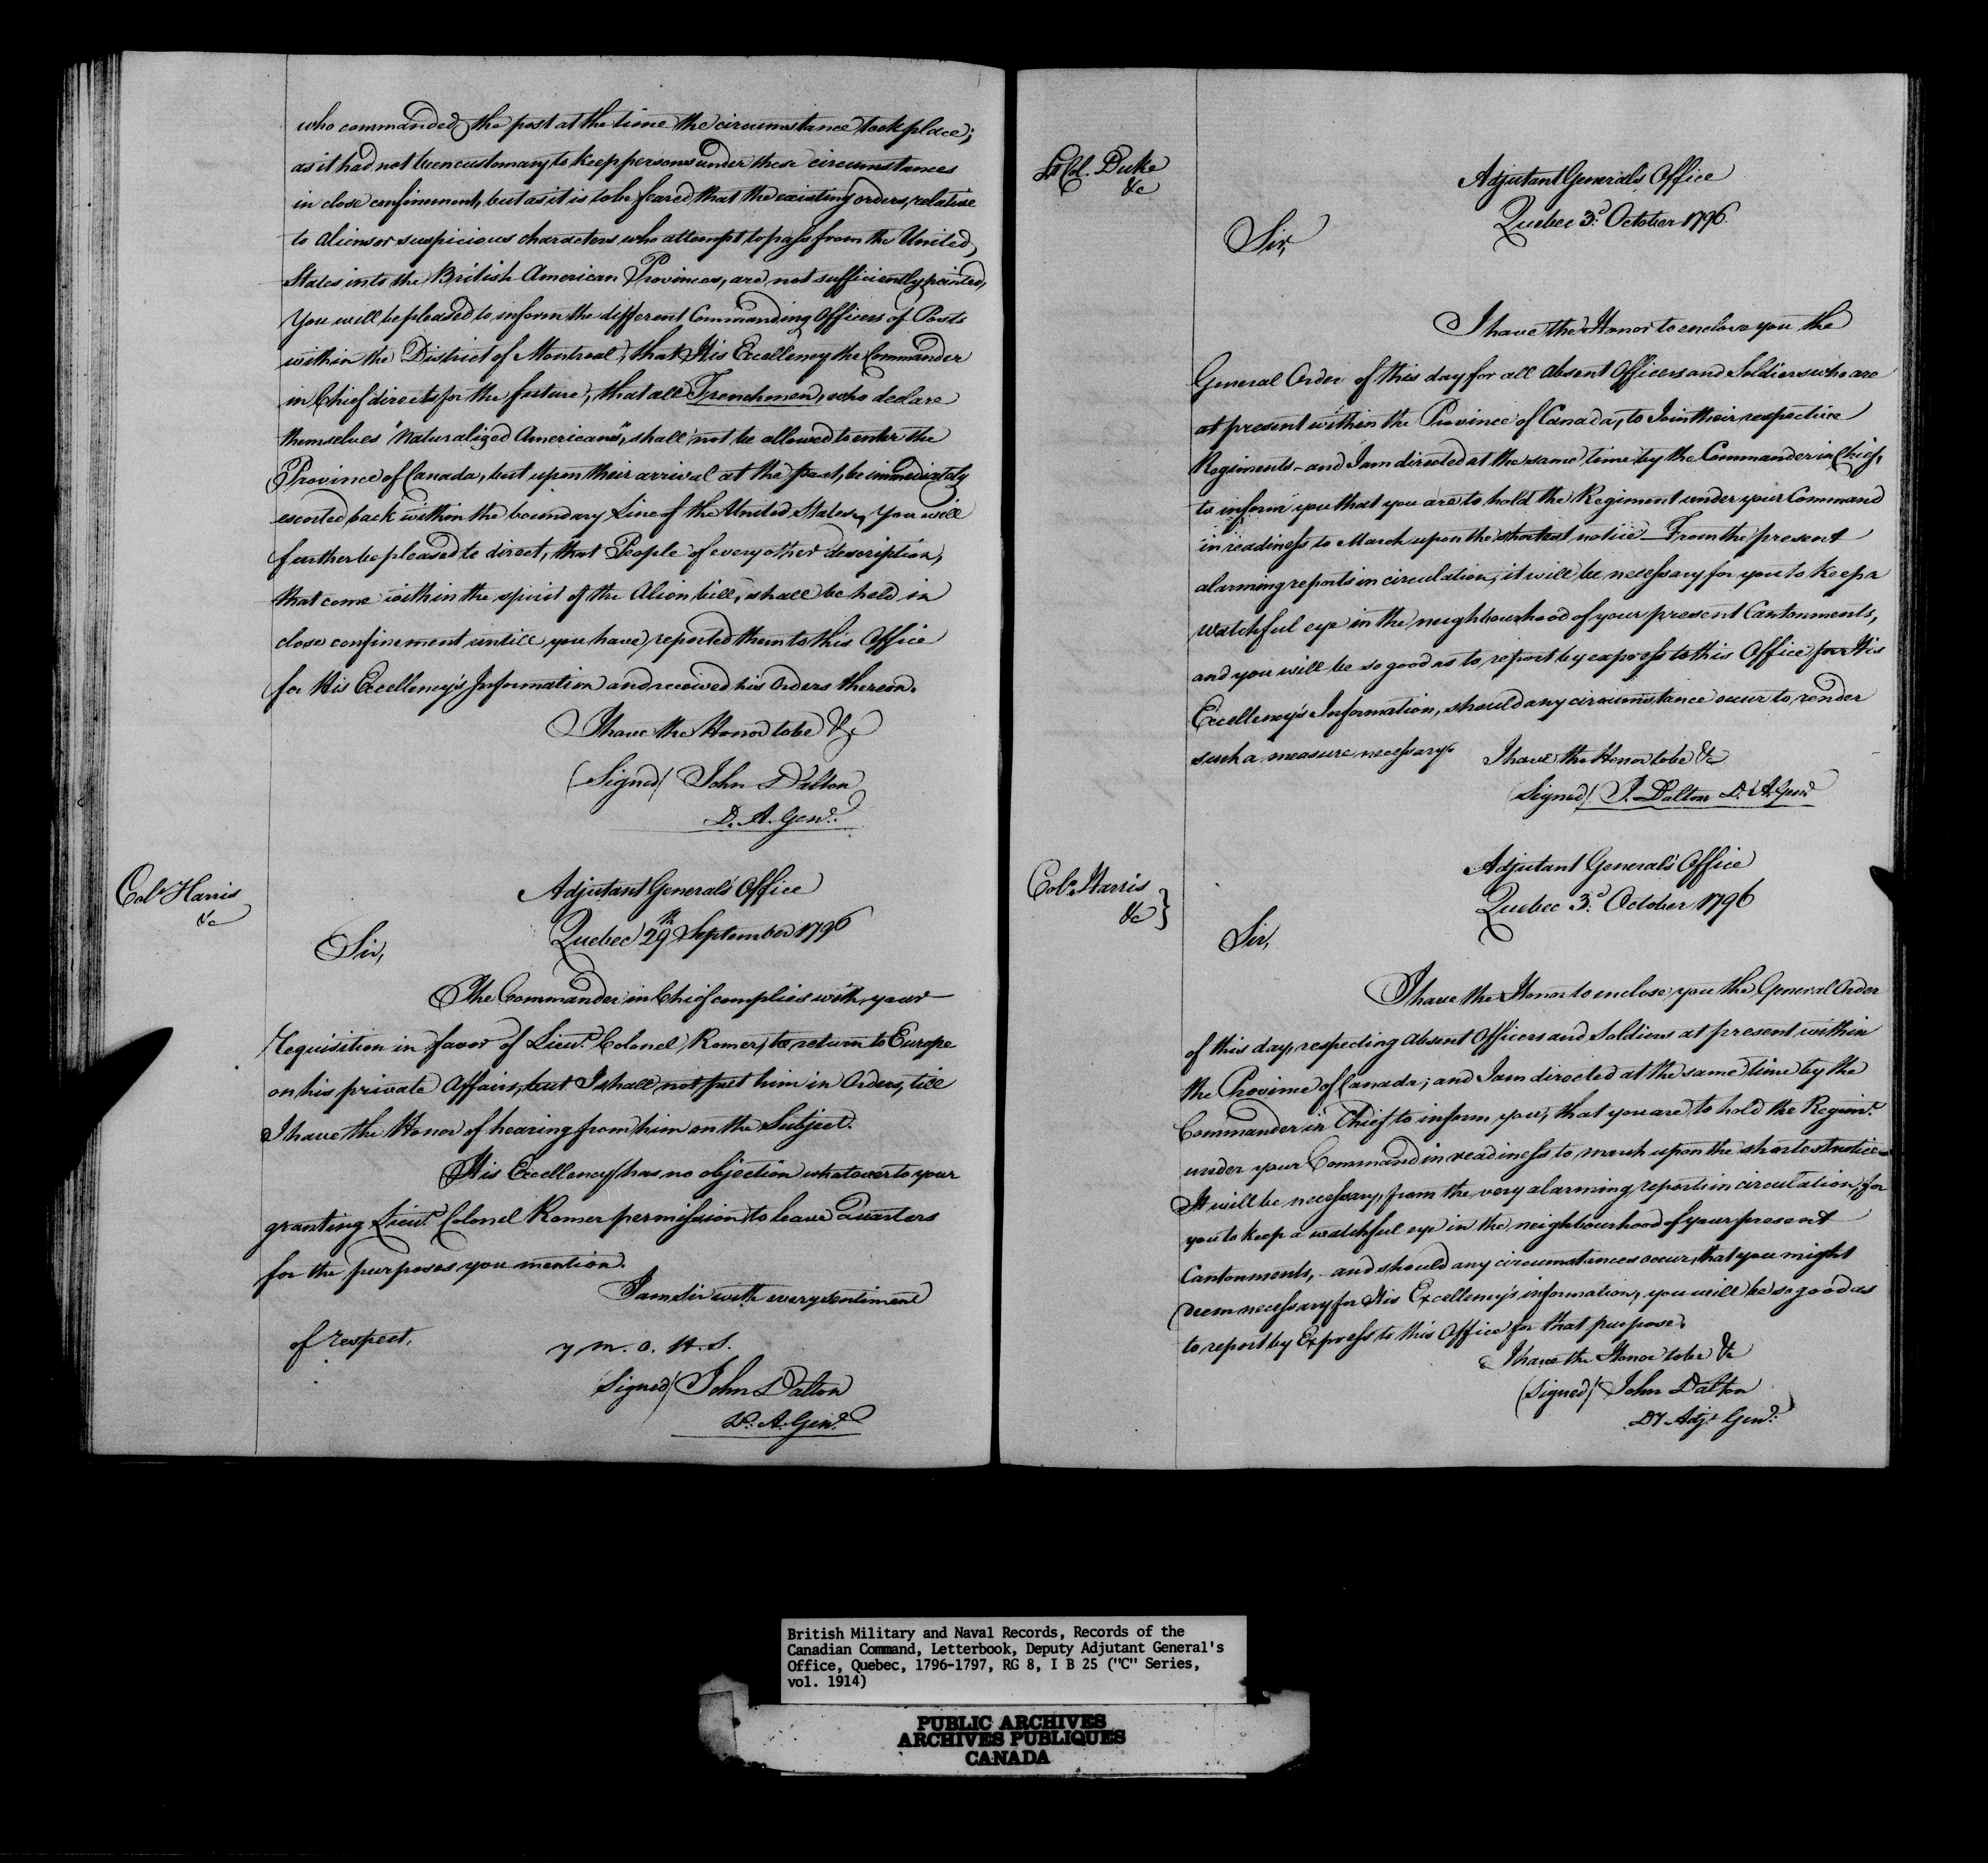 who commanded the post at the time the circumstance took place;
as it had not been customary to keep persons under these circumstances
in close confinement, but as it is to be feared, that the existing orders, relative
to Aliens or suspicious characters who attempt to pass from the United
States into the British American Provinces, are not sufficiently pointed,
You will be pleased to inform the different Commanding Officers of Posts
within the District of Montreal, that His Excellency the Commander
in Chief directs for the future, that all Frenchmen, who declare
themselves "Naturalized Americans", shall not be allowed to enter the
Province of Canada, but upon their arrival at the post, be immediately
escorted back within the boundary Line of the United States, You will
further be pleased to direct, that People of every other description,
that come within the spirit of the Alien bill, shall be held in
close confinement untill you have reported them to this Office
for His Excellency's Information and received his Orders thereon.
I have the Honor to be &c
(Signed) John Dalton
D. A. Genl.
Colo Harris
&c
Adjutant General's Office
Quebec 29th September 1796
Sir,
The Commander in Chief complies with your
requisition in favor of Lieut. Colonel Romer, to return to Europe
on his private Affairs, but I shall not put him in Orders, till
I have the Honor of hearing from him on the Subject.
His Excellency has no objection whatever to your
granting Lieut. Colonel Romer permission to leave Quarters
for the purposes you mention.
I am Sir with every sentiment
of respect,
y m. o. H. S.
Signed/ John Dalton
D. A. Genl.
Lt Col. Duke
&c
Adjutant General's Office
Quebec 3d. October 1796
Sir,
I have the Honor to enclose you the
General Order of this day for all Absent Officers and Soldiers who are
at present within the Province of Canada, to Join their respective
Regiments - and I am directed at the same time by the Commander in Chief,
to inform you that you are to hold the Regiment under your Command
in readiness to March upon the shortest notice - From the present
alarming reports in circulation, it will be necessary for you to keep a
watchful eye in the neighbourhood of your present Cantonments,
and you will be so good as to report by express to this Office for His
Excellency's Information, should any circumstance occur to render
such a measure necessary. I have the Honor to be &c
(Signed) J. Dalton D. A. Genl
Colo. Harris
&c }
Adjutant General's Office
Quebec 3d. October 1796
Sir,
I have the Honor to enclose you the General Order
of this day, respecting Absent Officers and Soldiers at present within
the Province of Canada; and I am directed at the same time by the
Commander in Chief to inform you, that you are to hold the Regimt.
under your Command in readiness to march upon the shortest notice -
It will be necessary, from the very alarming reports in circulation, for
you to keep a watchful eye in the neighbourhood of your present
Cantonments, - and should any circumstances occur, that you might
deem necessary for His Excellency's information, you will be so good as
to report by Express to this Office for that purpose.
I have the Honor to be &c
(Signed) John Dalton
Dy Adjt Genl.
British Military and Naval Records, Records of the
Canadian Command, Letterbook, Deputy Adjutant General's
Office, Quebec, 1796-1797, RG 8, I B 25 ("C" Series,
vol. 1914)
PUBLIC ARCHIVES
ARCHIVES PUBLIQUES
CANADA